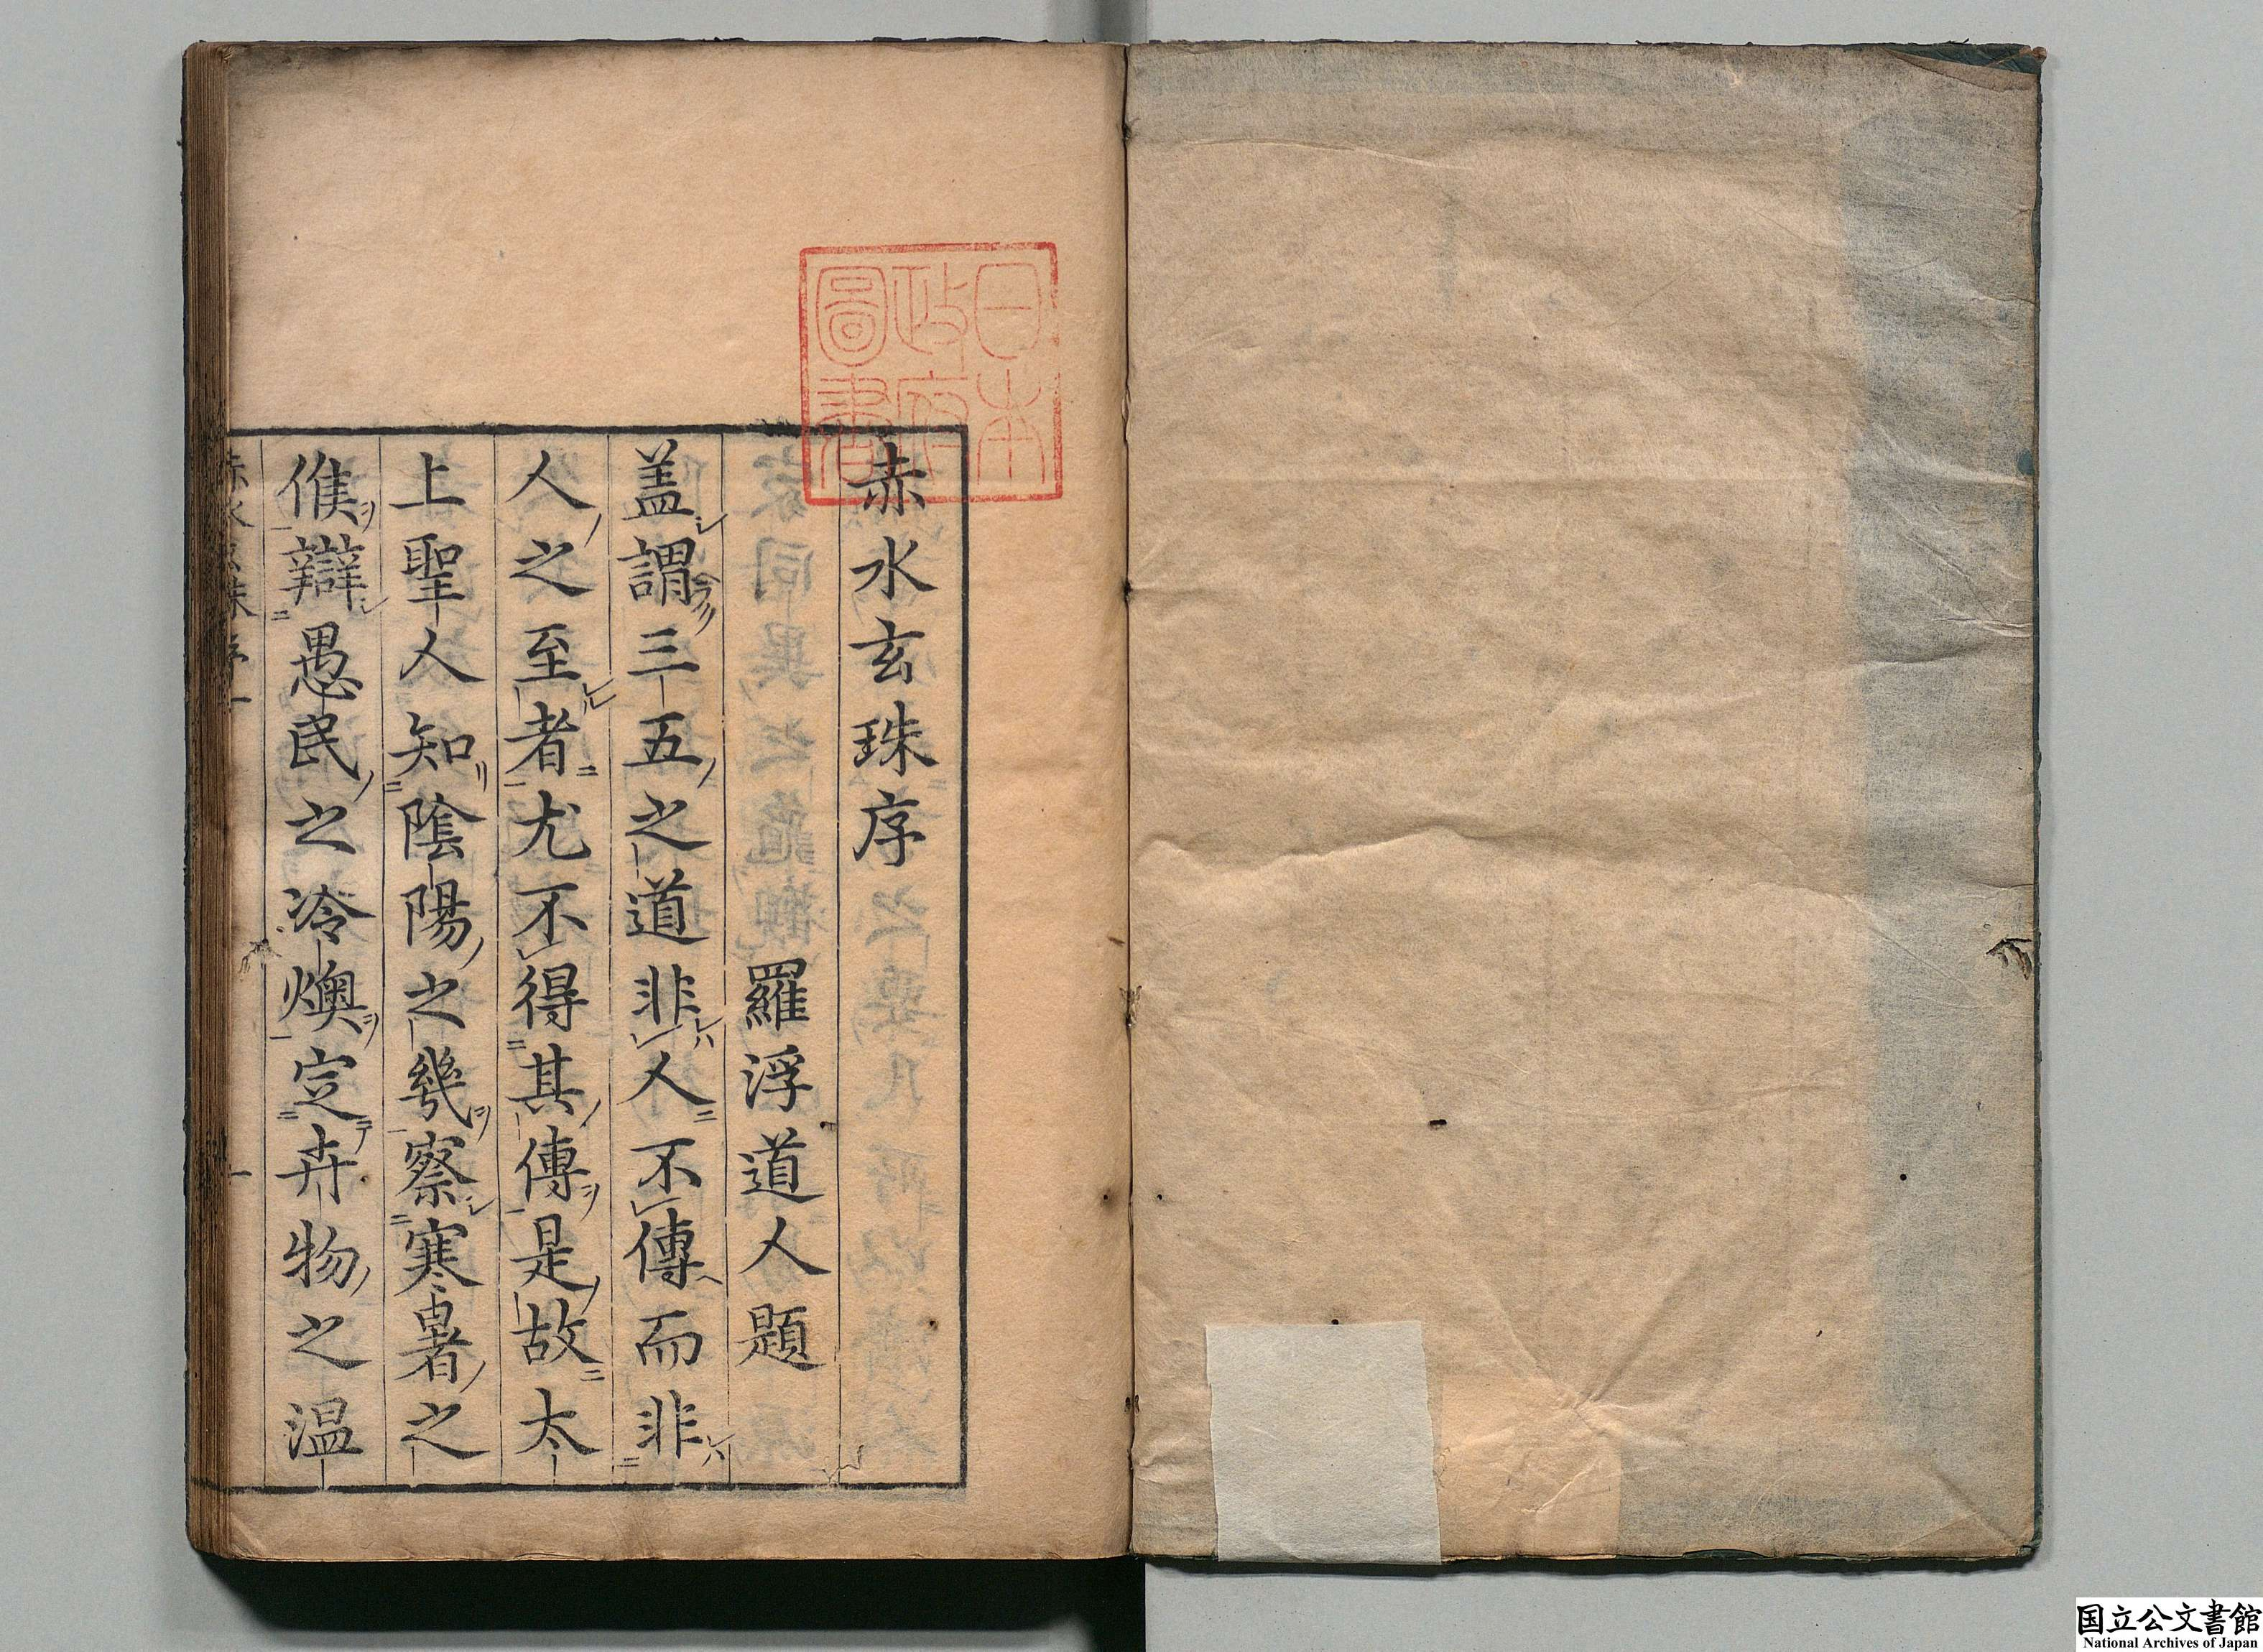 日本
政府
圖書
赤水玄珠序
羅浮道人題
盖謂三五之道非人不傳而非
人之至者尤不得其傳是故太
上聖人知陰陽之幾察寒暑之
候辯愚民之冷燠定卉物之温
赤水玄珠序 一
国立公文書館
National Archives of Japan